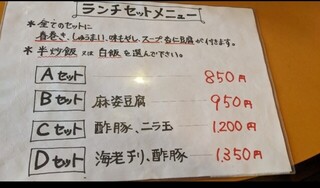 ランチセットメニュー
＊全てのセットに
春巻き、しゅうまい、味もやし、スープ、杏仁豆腐が付きます。
＊半炒飯 又は 白飯を選んで下さい。
Aセット 850円
Bセット 麻婆豆腐 950円
Cセット 酢豚、ニラ玉 1,200円
Dセット 海老チリ、酢豚 1,350円